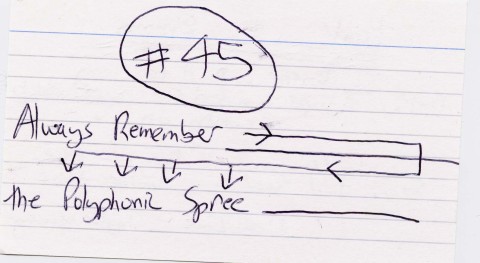 #45
Always Remember
the Polyphonic Spree